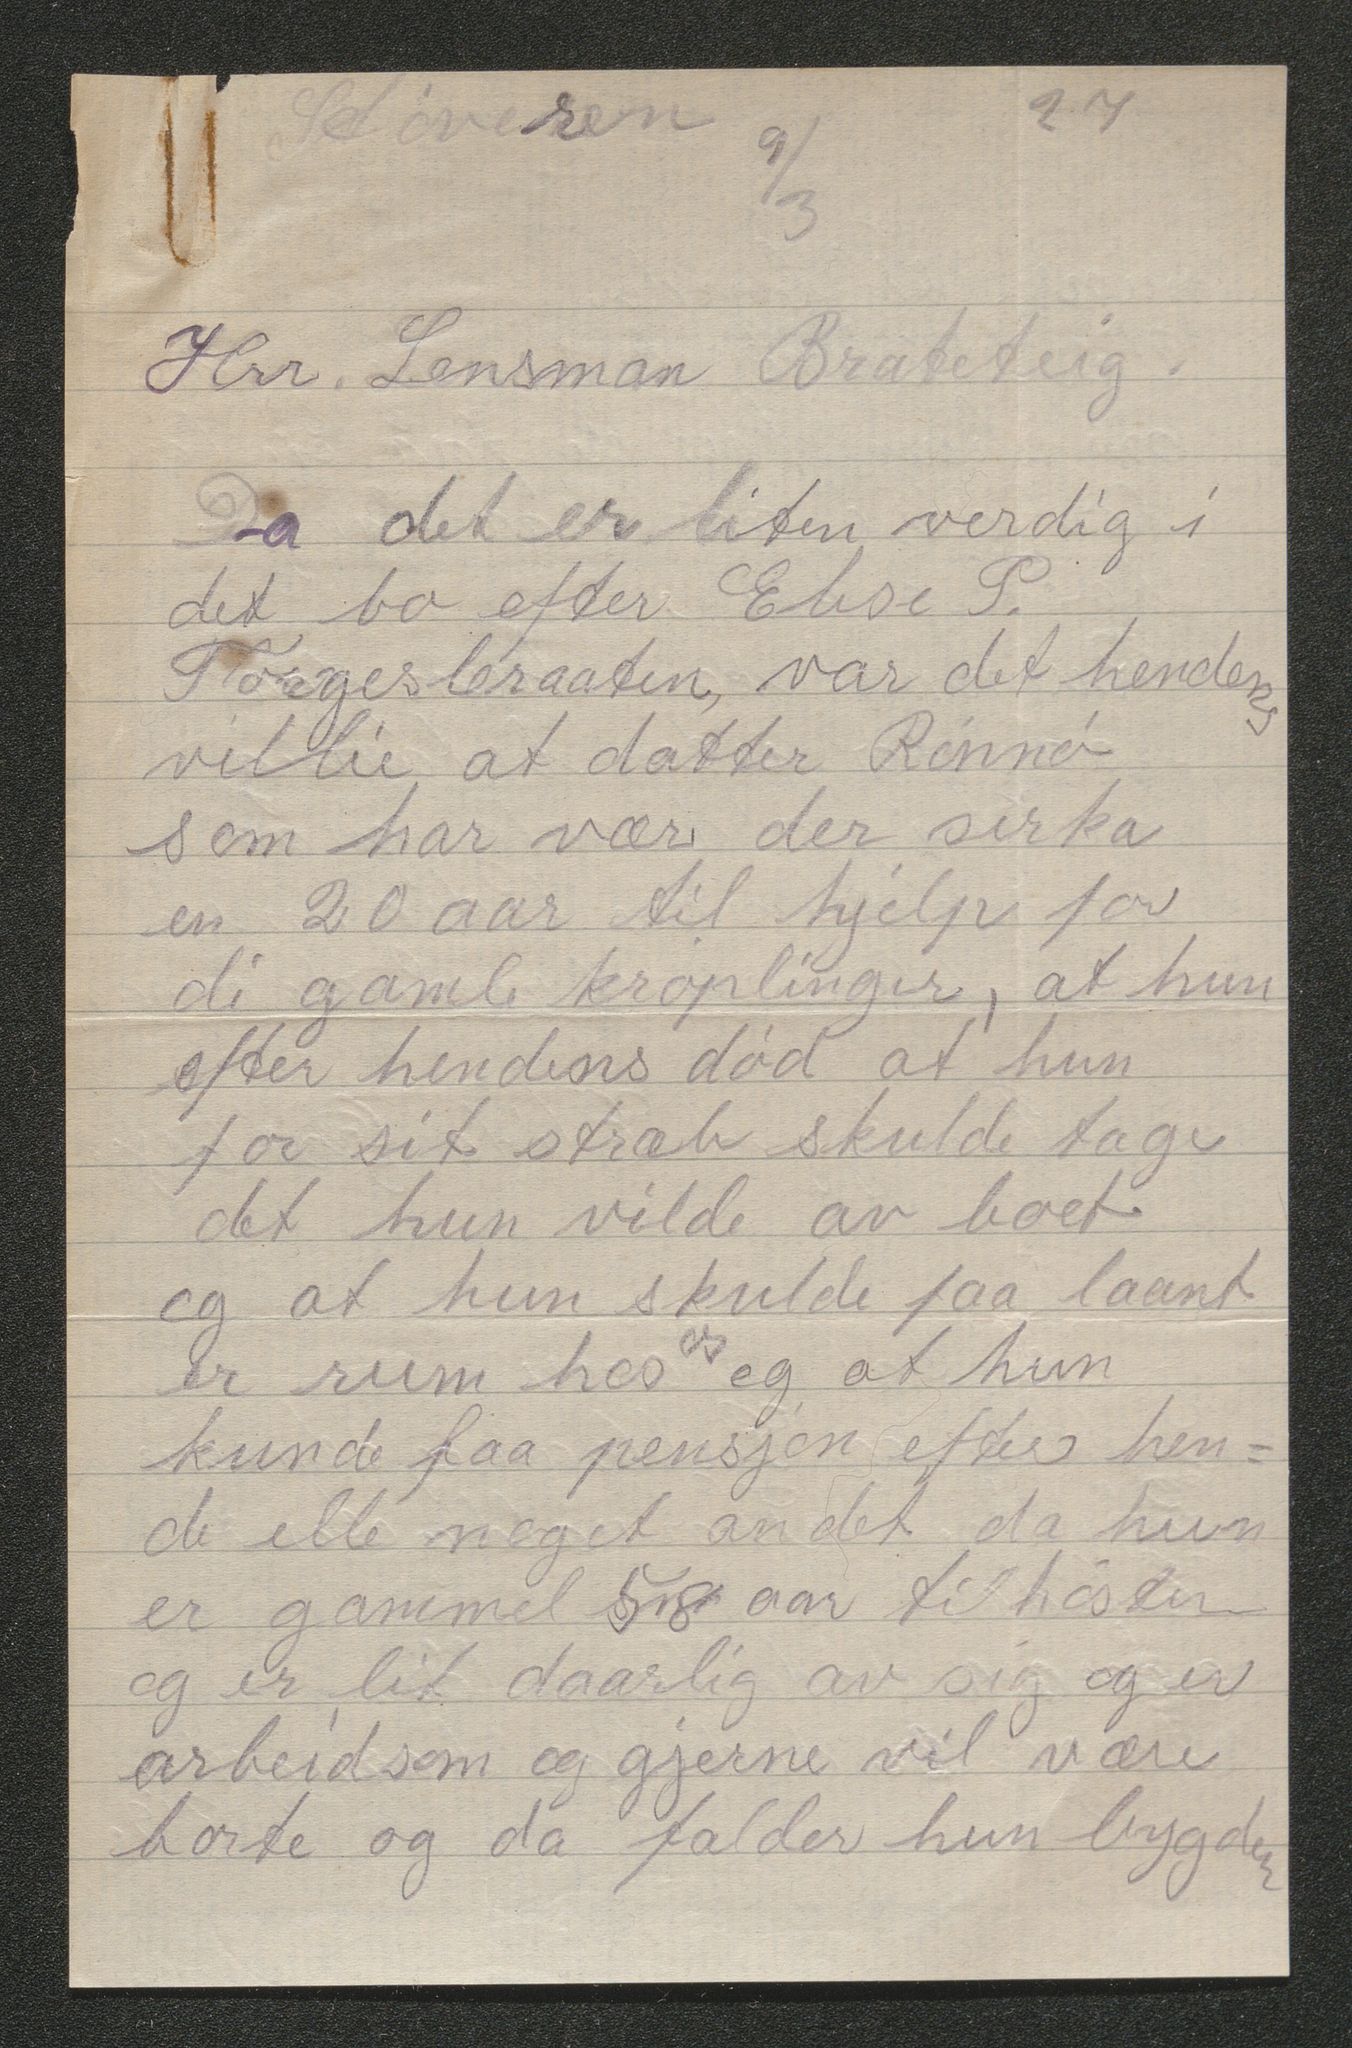 Støveren 9/3 27
Hrr. Lensman Brateteig.
Da det er liten verdig i
det bo efter Else P.
Torgersbraaten, var det hendens
villie at datter Rønnø
som har vær der sirka
en 20 aar til hjelp for
di gamle krøplinger, at hun
efter hendens død at hun
for sit stræb skulde tage
det hun vilde av boet
og at hun skulde faa laant
er rum hos os og at hun
kunde faa pensjon efter hen=
de elle noget andet da hun
er gammel 58 aar til høsten
og er lit daarlig av sig og er
arbeidsom og gjerne vil være
borte og da falder hun bygden